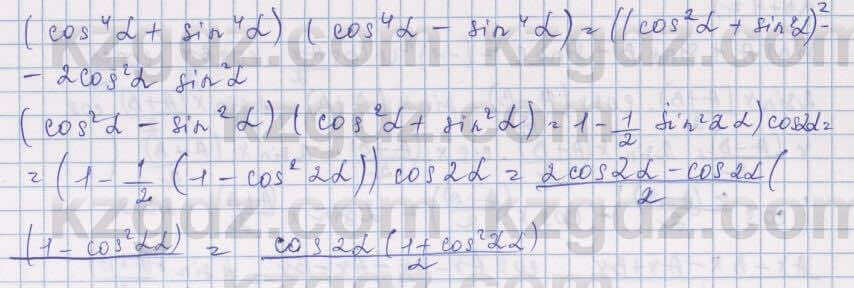 (cos⁴α + sin⁴α) (cos⁴α - sin⁴α) = ((cos²α + sin²α)² -
- 2cos²α sin²α
(cos²α - sin²α) (cos²α + sin²α) = 1 - 1/2 sin²2α) cos2α =
= (1 - 1/2 (1 - cos²2α)) cos2α = 2cos2α - cos2α( / 2
(1 - cos²2α) = cos2α (1 + cos²2α) / 2
kzgdz.com